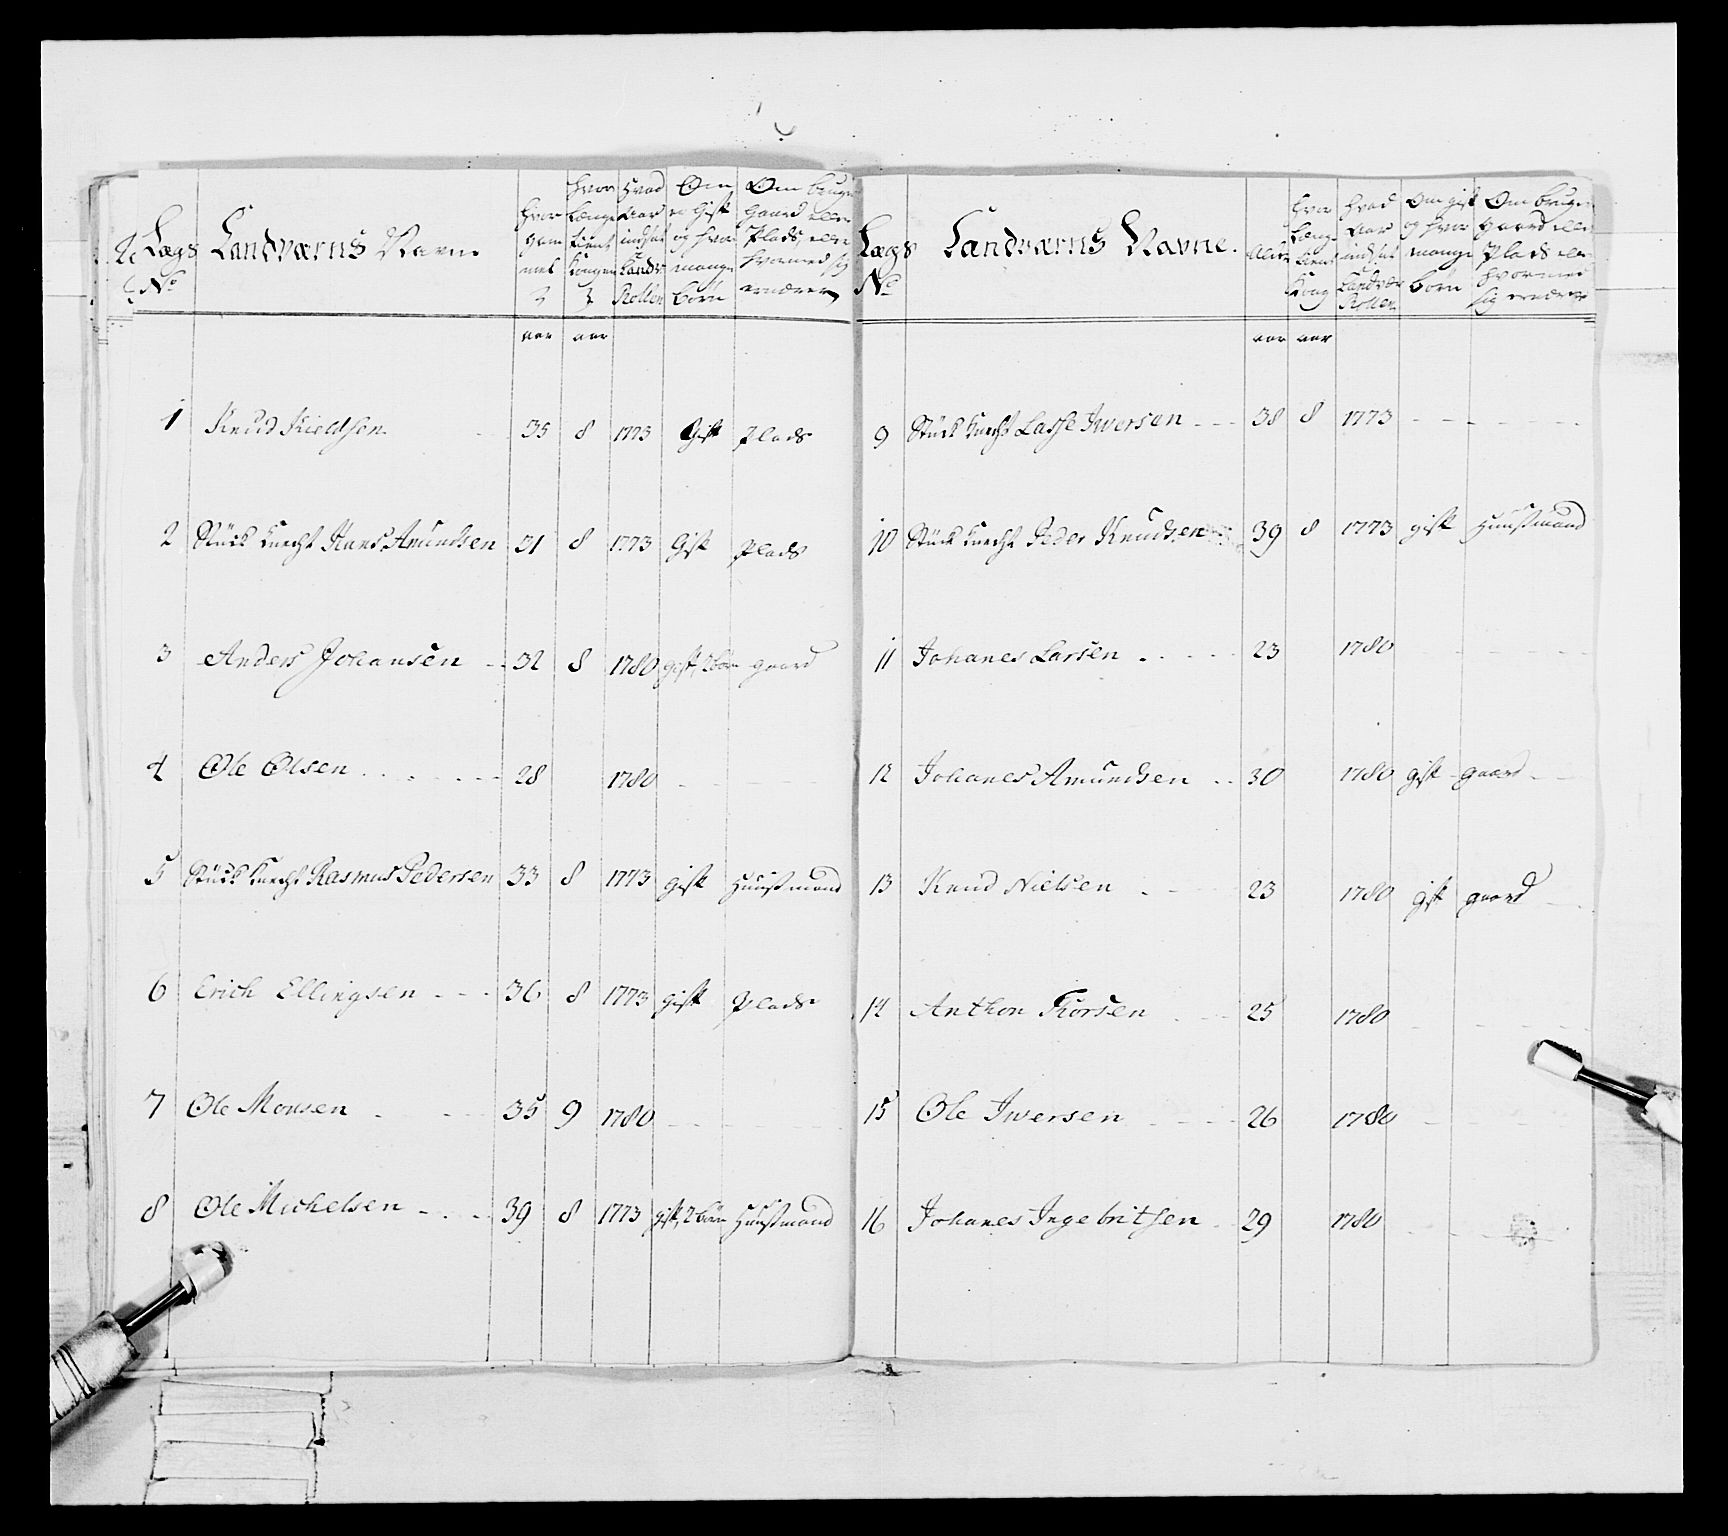 Lægs No
Landværns Navne
Hvor gam mel
Hvor Længe tient Kongen
Hvad Aar indsat Landv: Rollen
Om er Gift og hvor mange börn
Om bruger Gaard eller Plads, eller hvormed sig ernærer
aar aar
1 Knud Kieldsen 35 8 1773 Gift Plads
2 Stück Knecht Hans Amundsen 31 8 1773 Gift Plads
3 Anders Johansen 32 8 1780 gift, 2 börn gaard
4 Ole Olsen 28 1780
5 Stück Knecht Rasmus Pedersen 33 8 1773 gift Huusmand
6 Erich Ellingsen 36 8 1773 gift Plads
7 Ole Monsen 35 9 1780
8 Ole Michelsen 39 8 1773 gift, 2 börn Huusmand
Lægs No
Landværns Navne.
Alder
Hvor Længe tient Kong
Hvad Aar indsat Landvær Rollen
Om gift og hvor mange börn
Om bruger gaard eller Plads eller hvormed sig ernærer
aar aar
9 Stück Knecht Lasse Iversen 38 8 1773
10 Stück Knecht Peder Knudsen 39 8 1773 gift Huusmand
11 Johanes Larsen 23 1780
12 Johanes Amundsen 30 1780 gift gaard
13 Knud Nielsen 23 1780 gift gaard
14 Anthon Torsen 25 1780
15 Ole Iversen 26 1780
16 Johanes Ingebritsen 29 1780